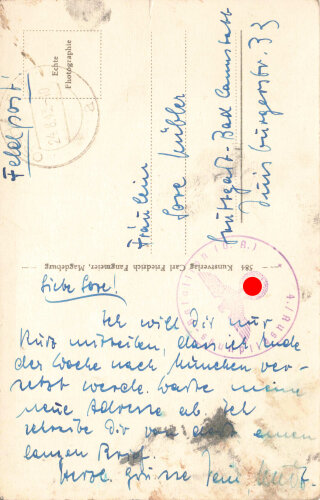 Feldpost!
Echte
Photographie
24.10.43
Fräulein
Lore Kübler
Stuttgart-Bad Cannstatt
Duisburgerstr. 33
584 Kunstverlag Carl Friedrich Fangmeier, Magdeburg
Liebe Lore!
Ich will Dir nur
kurz mitteilen, dass ich Ende
der Woche nach München ver-
setzt werde. Warte meine
neue Adresse ab. Ich
schreibe Dir von dort einen
langen Brief.
Herzl. Grüsse Dein